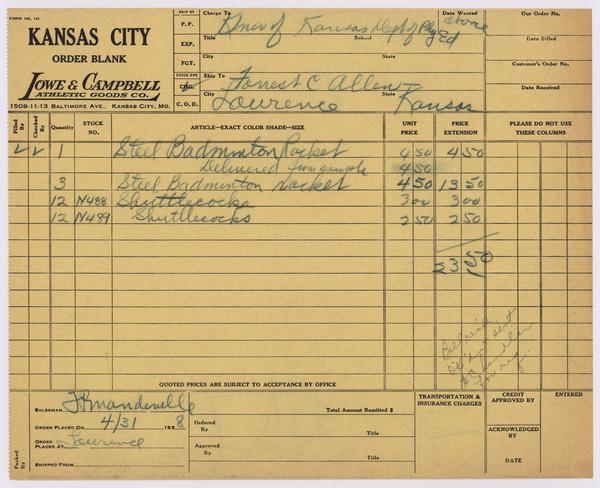 FORM NO. 114
KANSAS CITY
ORDER BLANK
LOWE & CAMPBELL
ATHLETIC GOODS CO.
1509-11-13 BALTIMORE AVE. KANSAS CITY, MO.
SHIP BY
P.P.
EXP.
FGT.
CHECK ONE
CHG.
C.O.D.
Charge To Univ of Kansas Dept of Phy Ed
Title School
City State
Ship To Forrest C Allen
City Lawrence State Kansas
Date Wanted above
Our Order No.
Date Billed
Customer's Order No.
Date Received
Filled By Checked By Quantity STOCK NO. ARTICLE—EXACT COLOR SHADE—SIZE UNIT PRICE PRICE EXTENSION PLEASE DO NOT USE THESE COLUMNS
1 Steel Badminton Racket 4 50 4 50
Delivered from sample 4 50
3 Steel Badminton racket 4 50 13 50
12 N488 Shuttlecocks 3 00 3 00
12 N489 Shuttlecocks 2 50 2 50
23 50
QUOTED PRICES ARE SUBJECT TO ACCEPTANCE BY OFFICE
SALESMAN JPMandeville
ORDER PLACED ON 4/31 193 8
ORDER PLACED AT Lawrence
SHIPPED FROM
Packed By
Total Amount Remitted $
Ordered By
Title
Approved By
Title
TRANSPORTATION & INSURANCE CHARGES
CREDIT APPROVED BY
ENTERED
ACKNOWLEDGED BY
DATE